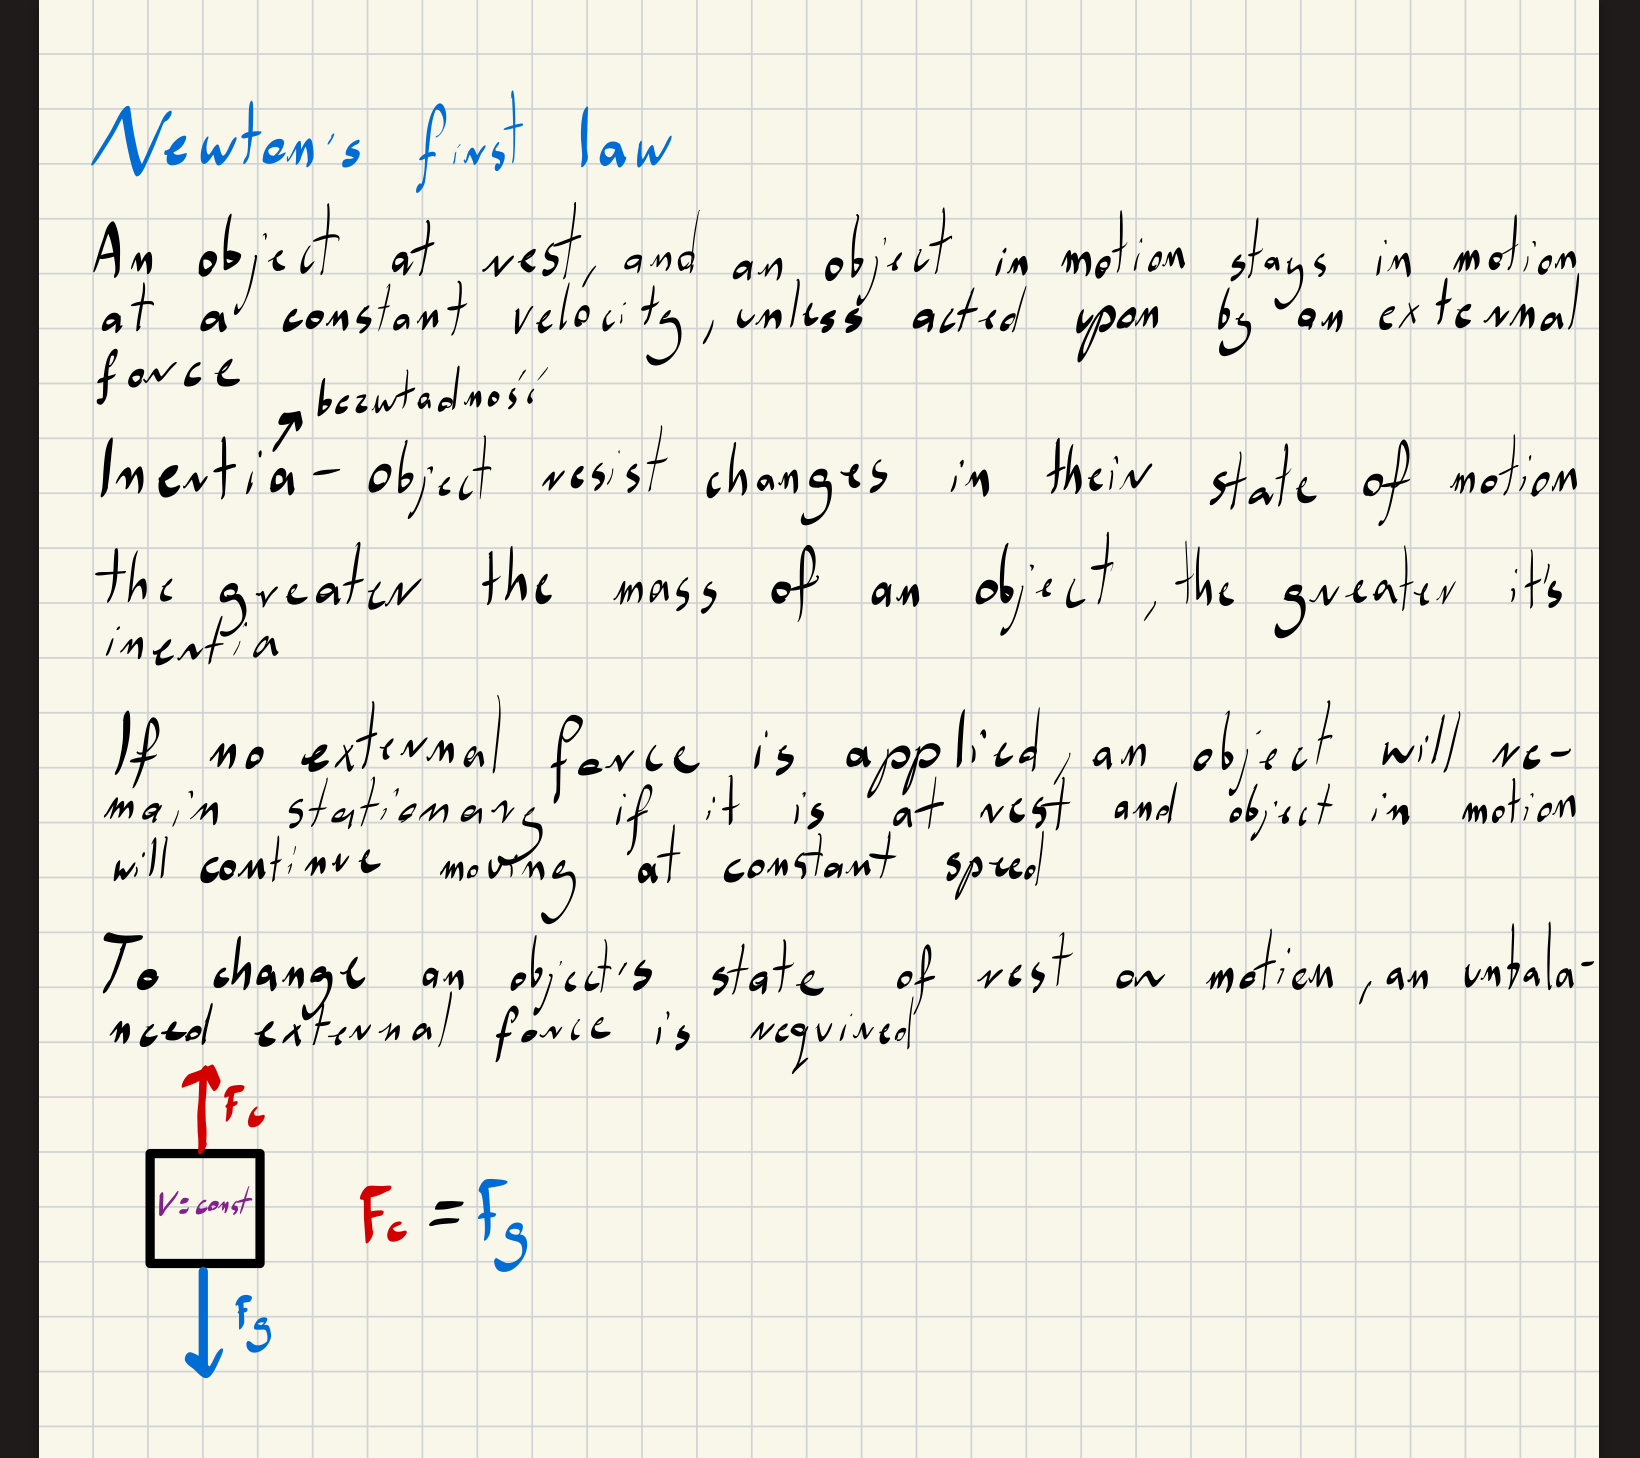 Newton's first law
An object at rest, and an object in motion stays in motion
at a constant velocity, unless acted upon by an external
force
bezwładność
Inertia - object resist changes in their state of motion
the greater the mass of an object, the greater it's
inertia
If no external force is applied, an object will re-
main stationary if it is at rest and object in motion
will continue moving at constant speed
To change an object's state of rest or motion, an unbala-
nced external force is required
Fc
V=const
Fc = Fg
Fg